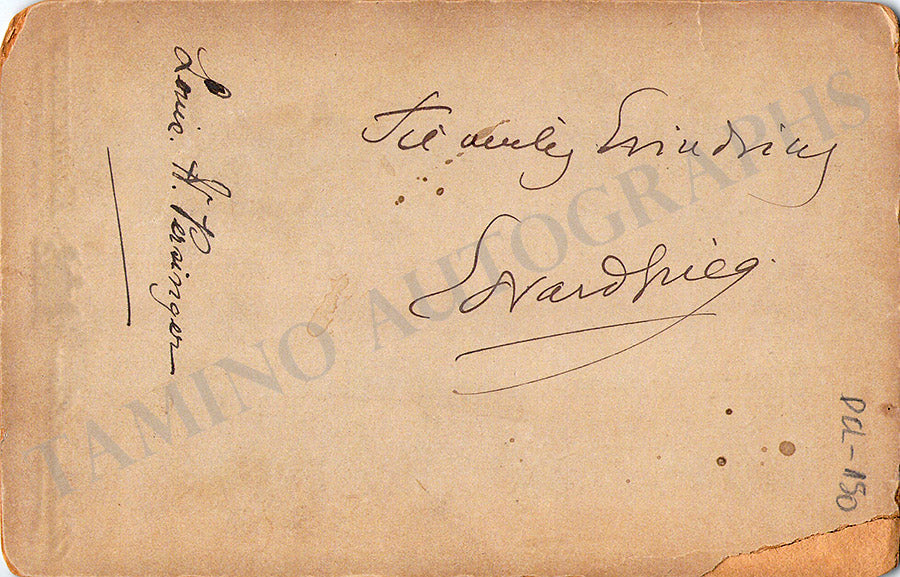 Til venlig Erindring
Edvard Grieg.
Louis. H. Persinger
PCL-150
TAMINO AUTOGRAPHS